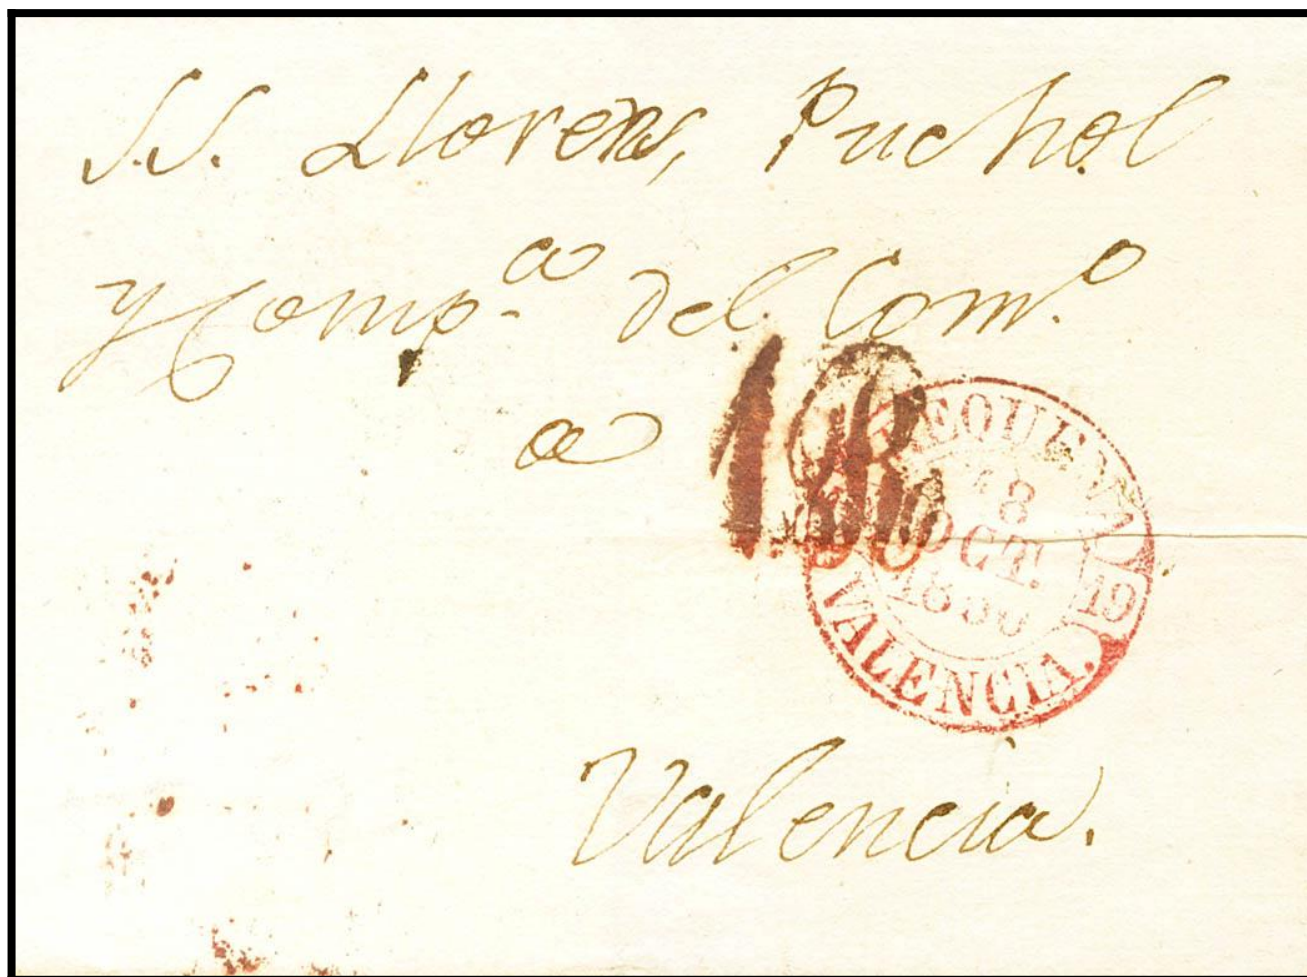 S.S. Llorens, Puchol
y Comp.ª del Com.º
a
18
REQUENA
18
OCT.
19
VALENCIA.
Valencia.